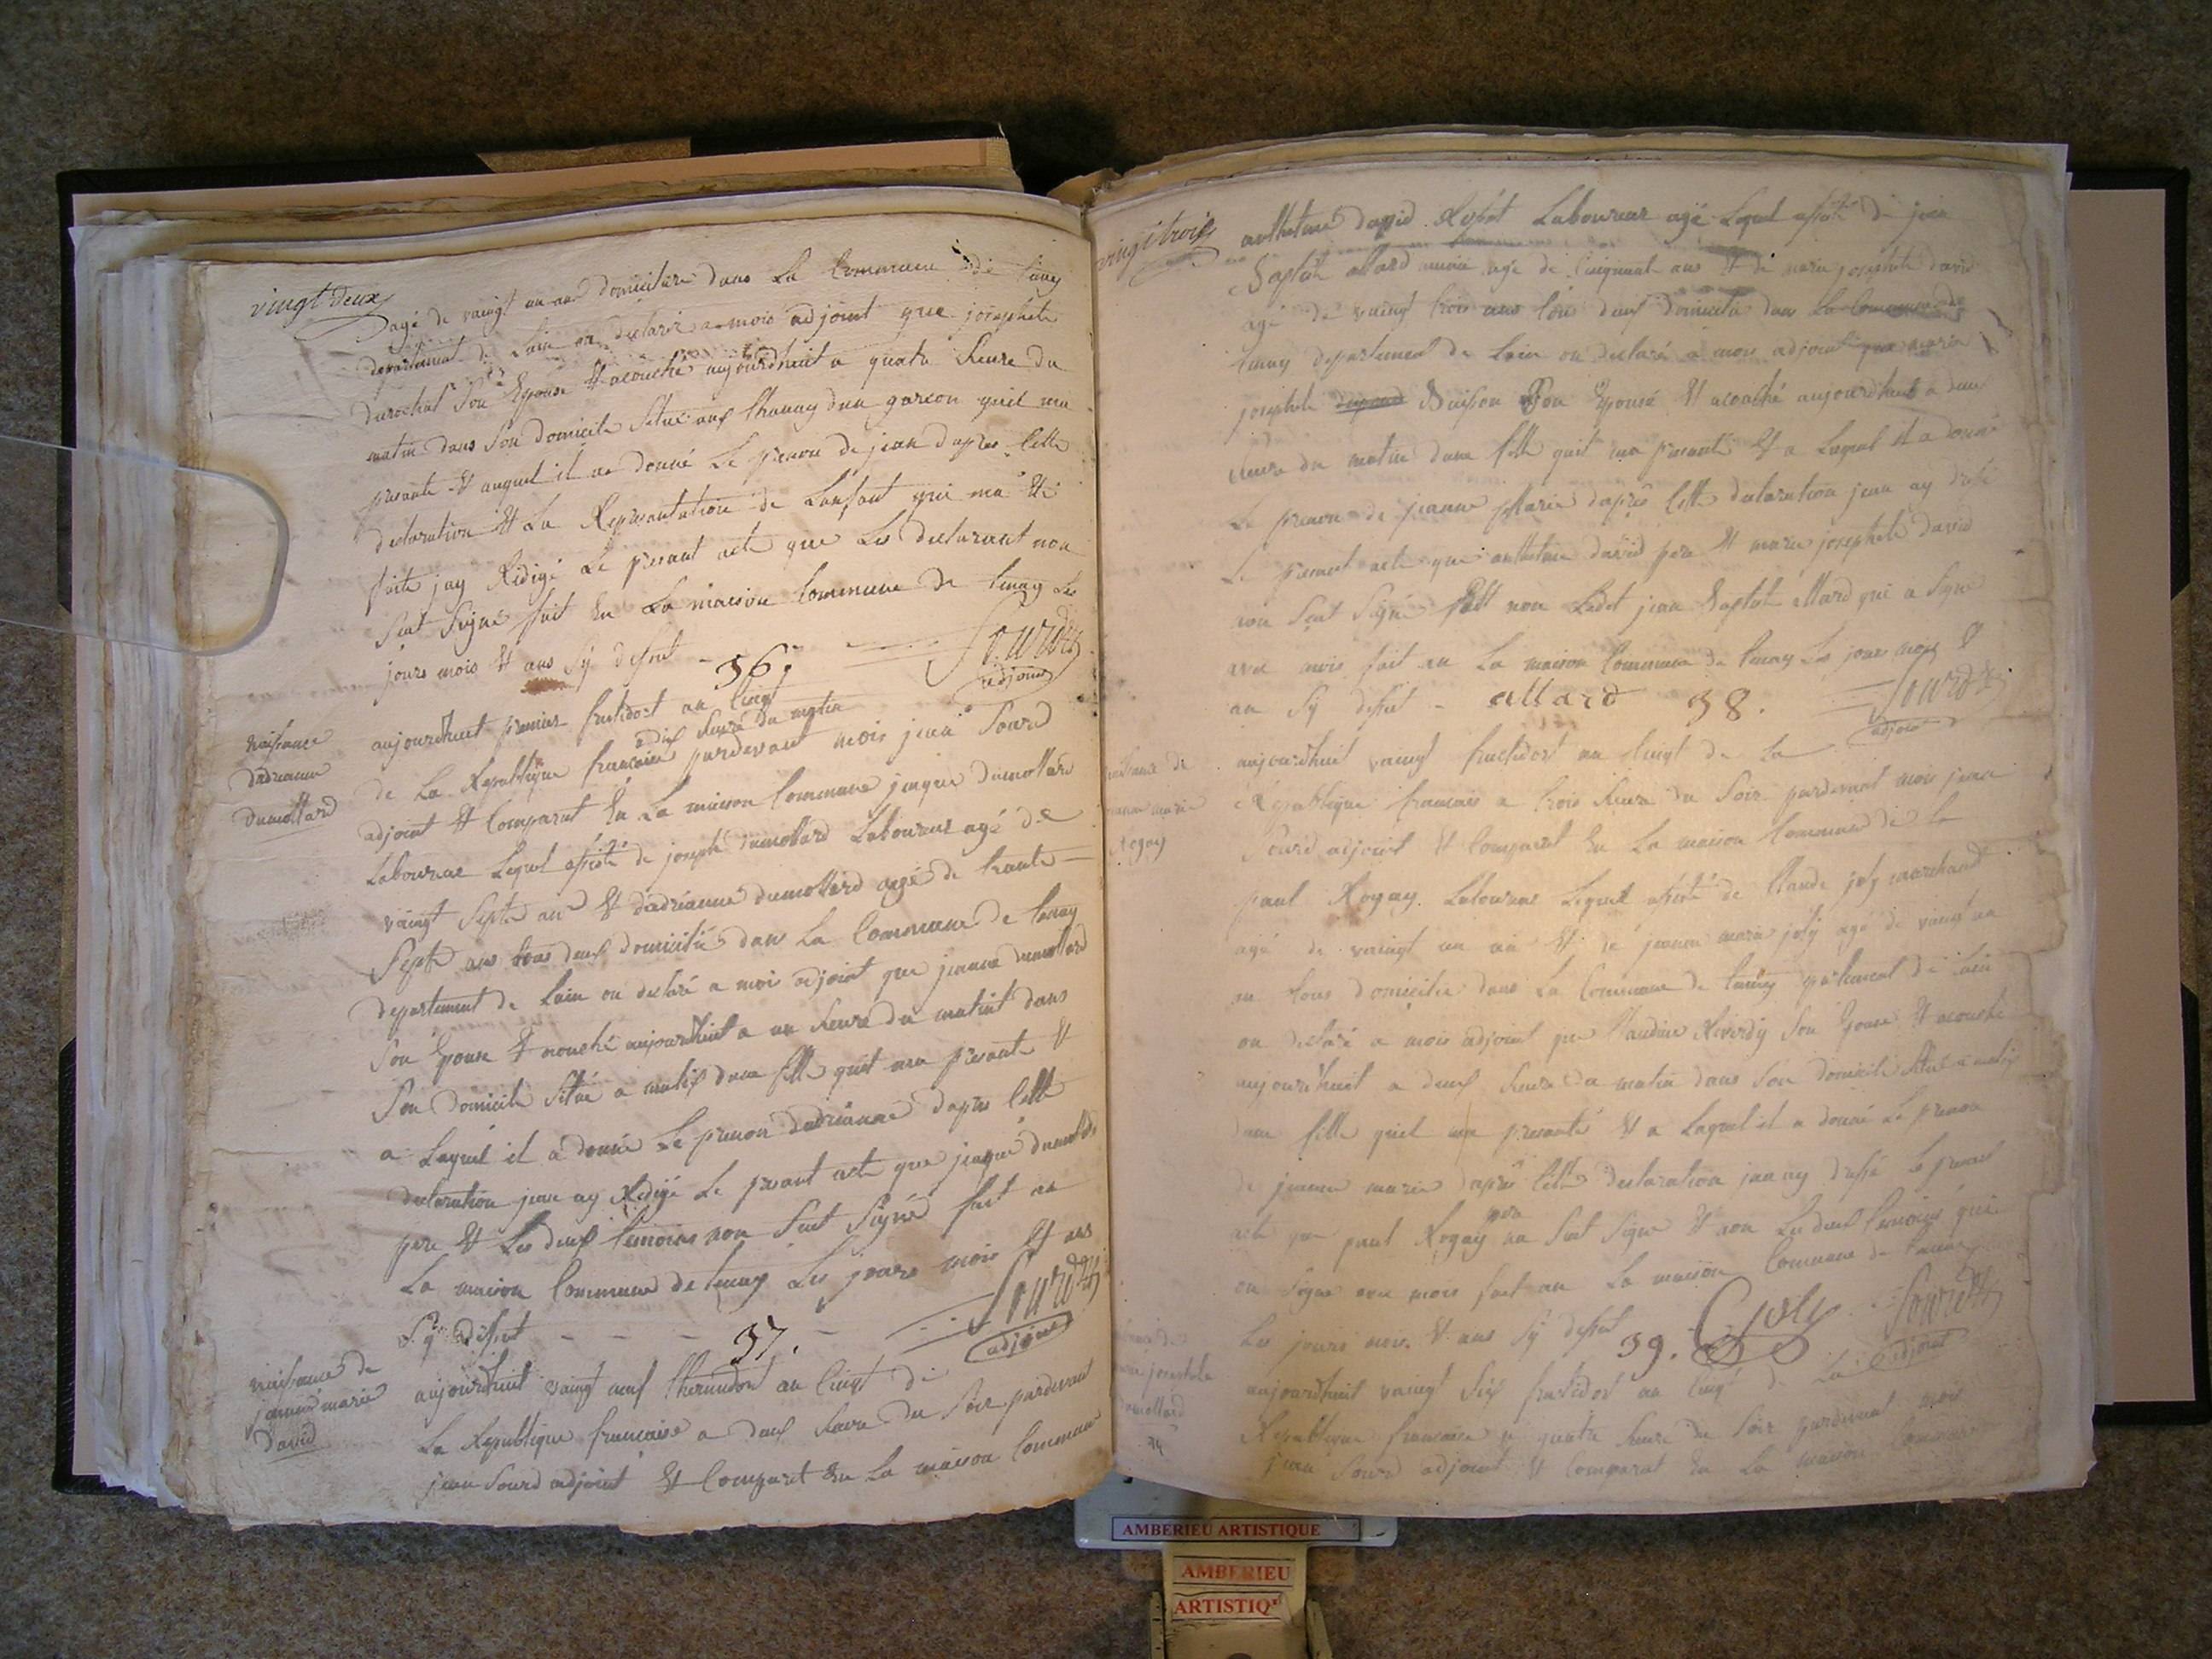 vingt deux
agé de vaingt un an domicilire dans La Commune de tenay
departement de Lain on declaré a mois adjoint que josephete
durochat Son Epouse Et acouché aujourdhuit a quatre heure du
matin dans Son domicile Situé aux dun garcon quil ma
presanté Et auquel il at donné Le prenon de jean dapres Cette
declaration Et La Represantation de Lanfant qui ma Eté
faite jay Redigé Le presant acte que Les declarant non
Seut Signé fait En La maison Commune de tenay Les
jours mois Et ans Sy desut
36.
Sourd
adjoint
naissance
dadrianne
dumollard
aujourdhuit premier fructidort an Cinqt
a dix heure du matin
de La Republique francaise pardevant mois jean Sourd
adjoint Et Comparut En La maison Commune jaque dumollard
Laboureur Lequel assisté de joseph dumollard Laboureur agé de
vaingt Septe an Et dadrianne dumollard agé de trante
Septe ans tous deux domicilié dans La Commune de tenay
departement de Lain on declaré a mois adjoint que jeanne dumollard
Son Epouse Et acouché aujourdhuit a un heure du matint dans
Son domicile Situé a malix dune fille quit ma presanté Et
a Laquel il a donné Le prenon dadrianne dapres Cette
declaration jean ay Redigé Le presant acte que jaque dumollard
pere Et Les deux temoins non Seut Signé fait an
La maison Commune de tenay Les jours mois Et ans
Sy desut
37.
Sourd
adjoint
naissance de
jeanne marie
david
aujourdhuit vaingt neuf thermidort an Cinqt de
La Republique francaise a deux heure du Soir pardevant
jean Sourd adjoint Et Comparut En La maison Commune
vingt trois
anthelme david Laboureur agé Lequel assisté de jean
Baptist allard agé de Cinquant ans Et de marie josephete david
agé de vaingt trois ans tous deux domicilié dans La Commune de
tenay departement de Lain on declaré a mois adjoint que marie
josephete Buisson Son Epouse Et acouché aujourdhuit a deux
heure du matin dune fille quit ma presanté Et a Laquel il a donné
Le prenon de jeanne Marie dapres Cette declaration jean ay dresé
Le presant acte que anthelme david pere Et marie josephete david
non Seut Signé non Ledet jean Baptist allard qui a Signe
avec mois fait en La maison Commune de tenay Les jour mois Et
an Sy desut
allard
38.
Sourd
adjoint
naissance de
jeanne marie
Rogay
aujourdhuit vaingt fructidort an Cinqt de La
Republique francais a trois heure du Soir pardevant mois jean
Sourd adjoint Et Comparut En La maison Commune de La
paul Rogay Laboureur Lequel assisté de Claude joly marchand
agé de vaingt un an Et de jeanne marie joly agé de vaingt un
an tous domicilié dans La Commune de tenay departement de Lain
on declaré a mois adjoint que Claudine Reverdy Son Epouse Et acouché
aujourdhuit a deux heure du matin dans Son domicile Situé a malix
dune fille quil ma presanté Et a Laquel il a donné Le prenon
de jeanne marie dapres Cette declaration jean ay dressé Le presant
acte que paul Rogay pere na Seut Signe Et non Les deux temoins qui
on Signe avec mois fait an La maison Commune de tenay
Les jours mois Et ans Sy desut
39.
C joly
Sourd
adjoint
josephete
dumollard
aujourdhuit vaingt Six fructidor an Cinqt de La
Republique francaise a quatre heure du Soir pardevant mois
jean Sourd adjoint Et Comparut En La maison Commune
AMBERIEU ARTISTIQUE
AMBERIEU
ARTISTIQ